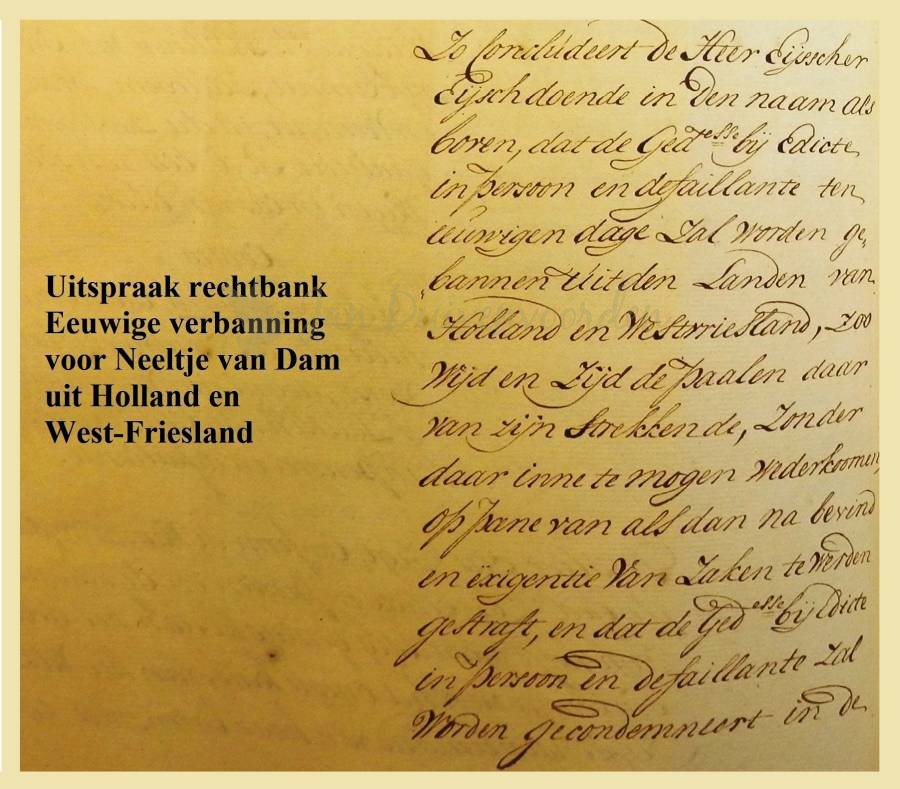 Uitspraak rechtbank
Eeuwige verbanning
voor Neeltje van Dam
uit Holland en
West-Friesland
Zo Concludeert de Heer Eijsscher
Eijsch doende in Den naam als
boven, dat de Ged esse bij Edicte
in persoon en defaillante ten
eeuwigen dage Zal Worden ge„
„bannen Uit den Landen van
Holland en Westvriesland, Zoo
Wijd en Zijd de paalen daar
van zijn Strekkende, Zonder
daar inne te mogen Wederkoomen,
op pæne van als dan na bevind
en ëxigentie Van Zaken te Werden
gestraft, en dat de Ged esse bij Edicte
in persoon en defaillante Zal
Worden gecondemneert in de